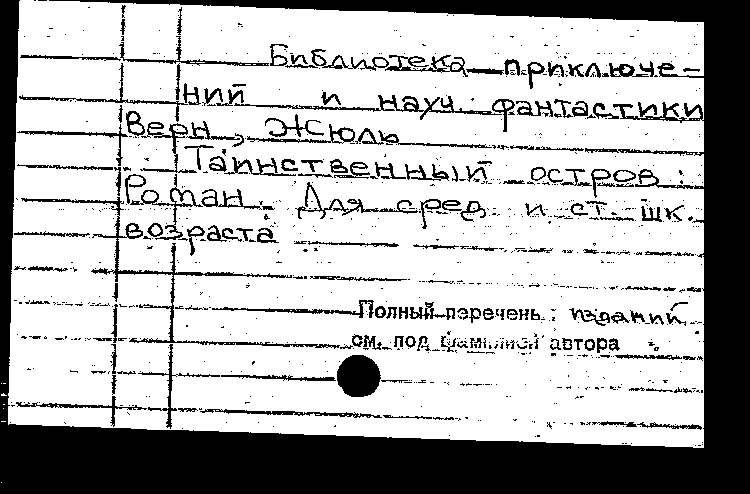 Библиотека приключе-
ний и науч. фантастики
Верн, Жюль
Таинственный остров:
Роман. Для сред. и ст. шк.
возраста
Полный перечень изданий
см. под фамилией автора